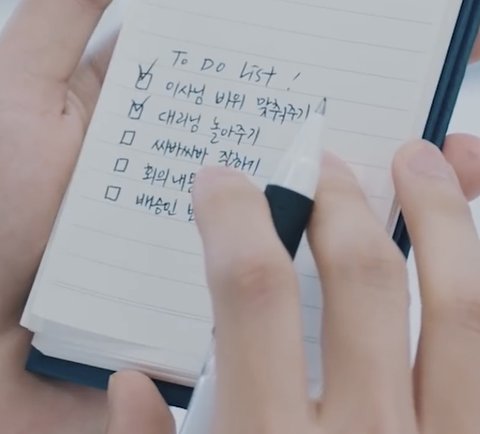 To Do List !
이사님 바위 맞춰주기
대리님 놀아주기
싸바싸바 잘하기
회의내
배승인